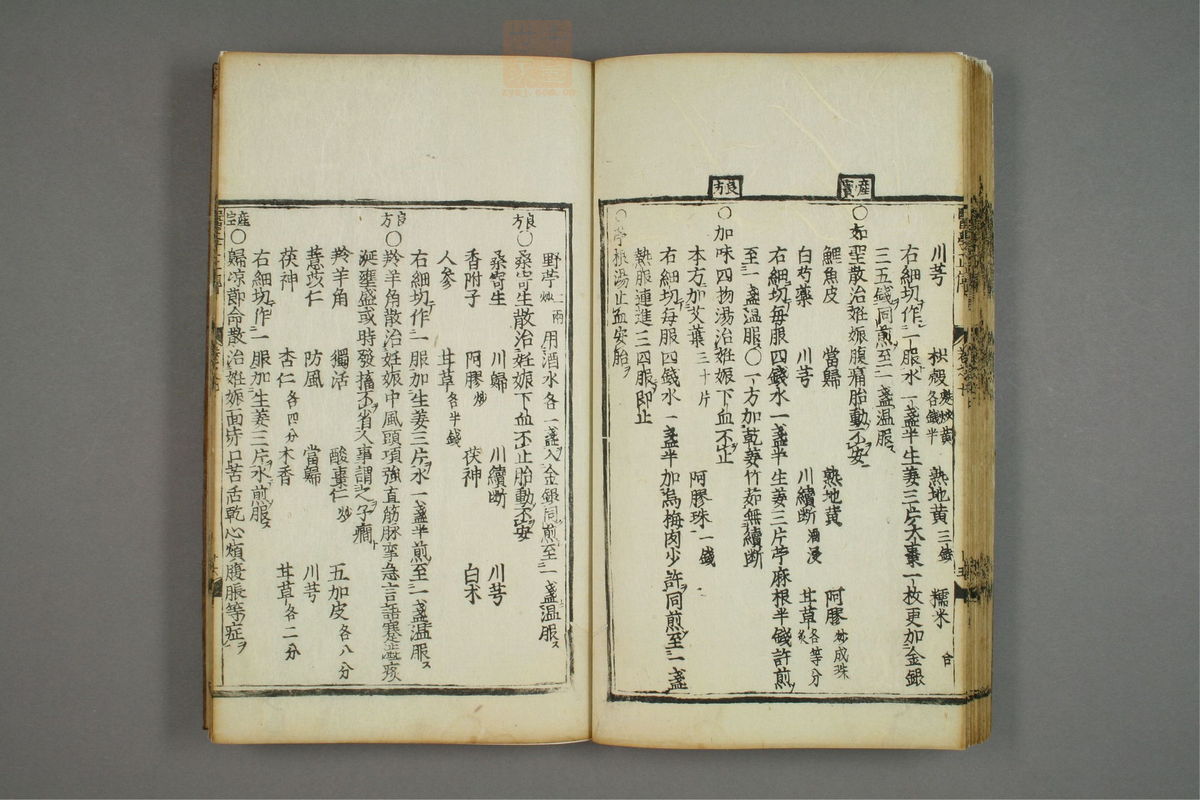 川芎 枳殻麩炒黄各錢半 熟地黄三錢 糯米合
右細切作一服水一盞半生姜三片大棗一枚更加金銀
三五錢同煎至一盞温服ス
産寳
○如聖散治妊娠腹痛胎動不安
鯉魚皮 當歸 熟地黄 阿膠炒成珠
白芍藥 川芎 川續断酒浸 甘草炙各等分
右細切毎服四錢水一盞半生姜三片苧麻根半錢許煎
至一盞温服○一方加乾姜竹茹無續断
良方
○加味四物湯治妊娠下血不止
本方加艾葉三十片 阿膠珠一錢
右細切毎服四錢水一盞半加烏梅肉少許同煎至一盞
熱服連進三四服即止
○苧根湯止血安胎ヲ
野苧炒二兩 用酒水各一盞入金銀同煎至一盞温服ス
良方
○桑寄生散治妊娠下血不止胎動不安
桑寄生 川歸 川續断 川芎
香附子 阿膠炒 茯神 白朮
人參 甘草各半錢
右細切作一服加生姜三片水一盞半煎至一盞温服ス
良方
○羚羊角散治妊娠中風頭項強直筋脉挛急言語蹇澁痰
涎壅盛或時發搐不省人事謂之子癎
羚羊角 獨活 酸棗仁炒 五加皮各八分
薏苡仁 防風 當歸 川芎
茯神 杏仁各四分 木香 甘草各二分
右細切作一服加生姜三片水煎服ス
産宝
○歸凉節命散治妊娠面㾗口苦舌乾心煩腹脹等症ヲ